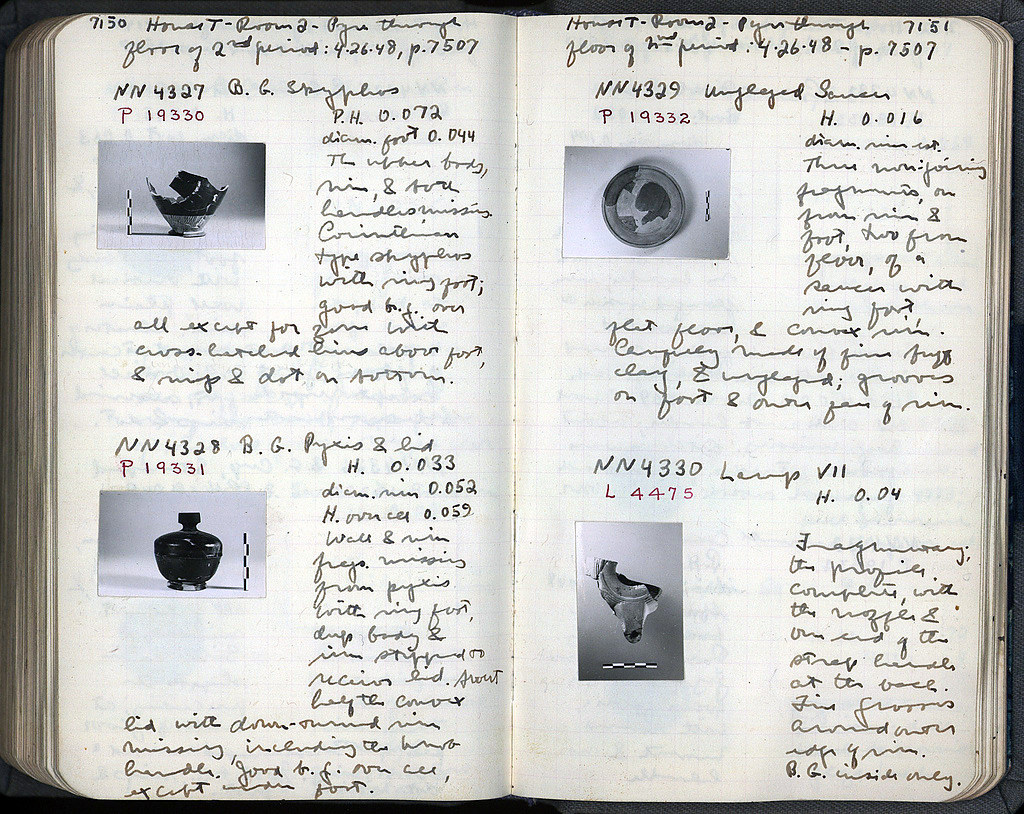 7150 House T - Room 2 - Pyre through
floor of 2nd period: 4-26-48, p. 7507
NN 4327 B. G. Skyphos
P 19330 P.H. 0.072
diam. foot 0.044
The upper body,
rim, & both
handles missing.
Corinthian
type skyphos
with ring foot;
good b.g. over
all except for zone with
cross-hatched lines above foot,
& rings & dot on bottom.
NN 4328 B. G. Pyxis & lid
P 19331 H. 0.033
diam. rim 0.052
H. over all 0.059
Wall & rim
frags. missing
from pyxis
with ring foot,
deep body &
rim stepped to
receive lid. About
half the convex
lid with down-turned rim
missing, including the knob
handle. Good b.g. over all,
except under foot.
House T - Room 2 - Pyre through 7151
floor of 2nd period: 4-26-48 - p. 7507
NN 4329 Unglazed Saucer
P 19332 H. 0.016
diam. rim est.
Three non-joining
fragments, one
from rim &
foot, two from
floor, of a
saucer with
ring foot,
flat floor, & convex rim.
Carefully made of fine buff
clay, & unglazed; grooves
on foot & outer face of rim.
NN 4330 Lamp VII
L 4475 H. 0.04
Fragmentary,
the profile
complete, with
the nozzle &
one end of the
strap handle
at the back.
Fine grooves
around outer
edge of rim.
B.G. inside only.